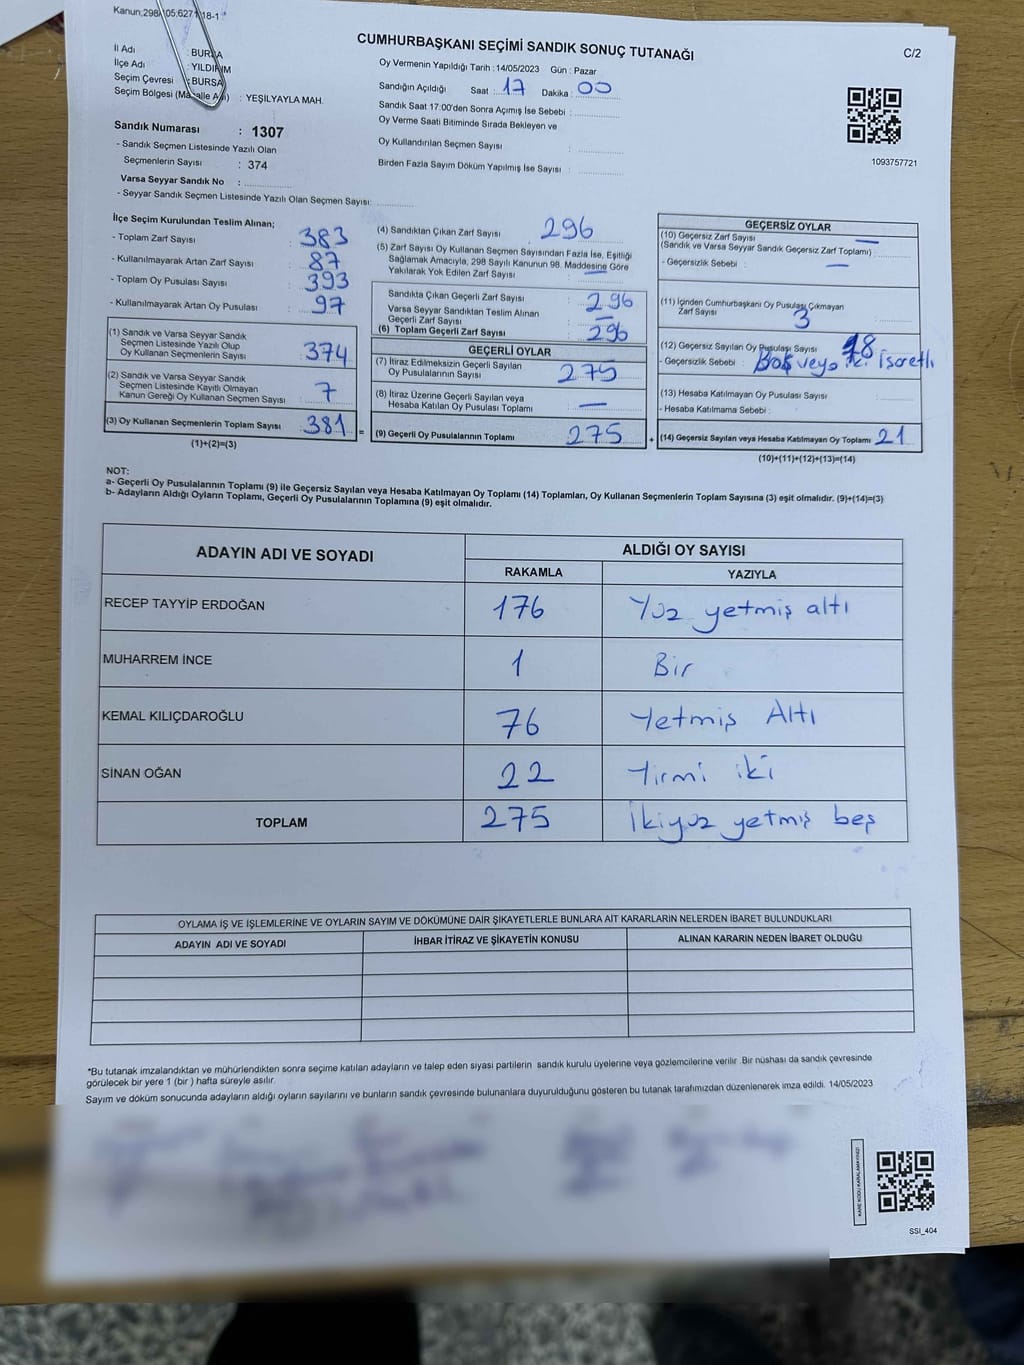 Kanun,298/105:627/18-1
CUMHURBAŞKANI SEÇİMİ SANDIK SONUÇ TUTANAĞI
C/2
İl Adı : BURSA
İlçe Adı : YILDIRIM
Seçim Çevresi : BURSA
Seçim Bölgesi (Mahalle Adı) : YEŞİLYAYLA MAH.
Sandık Numarası : 1307
- Sandık Seçmen Listesinde Yazılı Olan
Seçmenlerin Sayısı : 374
Varsa Seyyar Sandık No :
- Seyyar Sandık Seçmen Listesinde Yazılı Olan Seçmen Sayısı:
Oy Vermenin Yapıldığı Tarih : 14/05/2023 Gün : Pazar
Sandığın Açıldığı Saat : 17 Dakika : 00
Sandık Saat 17.00'den Sonra Açımış İse Sebebi :
Oy Verme Saati Bitiminde Sırada Bekleyen ve
Oy Kullandırılan Seçmen Sayısı :
Birden Fazla Sayım Döküm Yapılmış İse Sayısı :
1093757721
İlçe Seçim Kurulundan Teslim Alınan;
- Toplam Zarf Sayısı : 383
- Kullanılmayarak Artan Zarf Sayısı : 87
- Toplam Oy Pusulası Sayısı : 393
- Kullanılmayarak Artan Oy Pusulası : 97
(1) Sandık ve Varsa Seyyar Sandık
Seçmen Listesinde Yazılı Olup
Oy Kullanan Seçmenlerin Sayısı : 374
(2) Sandık ve Varsa Seyyar Sandık
Seçmen Listesinde Kayıtlı Olmayan
Kanun Gereği Oy Kullanan Seçmen Sayısı : 7
(3) Oy Kullanan Seçmenlerin Toplam Sayısı : 381
(1)+(2)=(3)
(4) Sandıktan Çıkan Zarf Sayısı : 296
(5) Zarf Sayısı Oy Kullanan Seçmen Sayısından Fazla İse, Eşitliği
Sağlamak Amacıyla, 298 Sayılı Kanunun 98. Maddesine Göre
Yakılarak Yok Edilen Zarf Sayısı : —
Sandıkta Çıkan Geçerli Zarf Sayısı : 296
Varsa Seyyar Sandıktan Teslim Alınan
Geçerli Zarf Sayısı : —
(6) Toplam Geçerli Zarf Sayısı : 296
GEÇERLİ OYLAR
(7) İtiraz Edilmeksizin Geçerli Sayılan
Oy Pusulalarının Sayısı : 275
(8) İtiraz Üzerine Geçerli Sayılan veya
Hesaba Katılan Oy Pusulası Toplamı : —
= (9) Geçerli Oy Pusulalarının Toplamı : 275
GEÇERSİZ OYLAR
(10) Geçersiz Zarf Sayısı —
(Sandık ve Varsa Seyyar Sandık Geçersiz Zarf Toplamı) :
- Geçersizlik Sebebi : —
(11) İçinden Cumhurbaşkanı Oy Pusulası Çıkmayan
Zarf Sayısı : 3
(12) Geçersiz Sayılan Oy Pusulası Sayısı : 18
- Geçersizlik Sebebi : Boş veya iki işaretli
(13) Hesaba Katılmayan Oy Pusulası Sayısı :
- Hesaba Katılmama Sebebi :
+ (14) Geçersiz Sayılan veya Hesaba Katılmayan Oy Toplamı 21
(10)+(11)+(12)+(13)=(14)
NOT:
a- Geçerli Oy Pusulalarının Toplamı (9) ile Geçersiz Sayılan veya Hesaba Katılmayan Oy Toplamı (14) Toplamları, Oy Kullanan Seçmenlerin Toplam Sayısına (3) eşit olmalıdır. (9)+(14)=(3)
b- Adayların Aldığı Oyların Toplamı, Geçerli Oy Pusulalarının Toplamına (9) eşit olmalıdır.
ADAYIN ADI VE SOYADI
ALDIĞI OY SAYISI
RAKAMLA YAZIYLA
RECEP TAYYİP ERDOĞAN 176 Yüz yetmiş altı
MUHARREM İNCE 1 Bir
KEMAL KILIÇDAROĞLU 76 Yetmiş Altı
SİNAN OĞAN 22 Yirmi iki
TOPLAM 275 İkiyüz yetmiş beş
OYLAMA İŞ VE İŞLEMLERİNE VE OYLARIN SAYIM VE DÖKÜMÜNE DAİR ŞİKAYETLERLE BUNLARA AİT KARARLARIN NELERDEN İBARET BULUNDUKLARI
ADAYIN ADI VE SOYADI İHBAR İTİRAZ VE ŞİKAYETİN KONUSU ALINAN KARARIN NEDEN İBARET OLDUĞU
*Bu tutanak imzalandıktan ve mühürlendikten sonra seçime katılan adayların ve talep eden siyasi partilerin sandık kurulu üyelerine veya gözlemcilerine verilir. Bir nüshası da sandık çevresinde
görülecek bir yere 1 (bir ) hafta süreyle asılır.
Sayım ve döküm sonucunda adayların aldığı oyların sayılarını ve bunların sandık çevresinde bulunanlara duyurulduğunu gösteren bu tutanak tarafımızdan düzenlenerek imza edildi. 14/05/2023
SSI_404